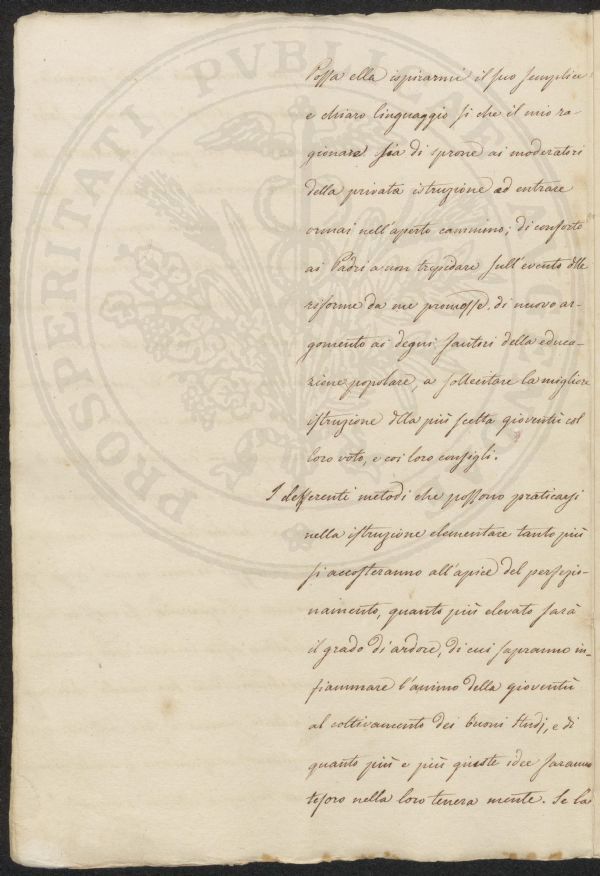 Possa ella ispirarmi il suo semplice
e chiaro linguaggio sì che il mio ra-
gionare sia di sprone ai moderatori
della privata istruzione ad entrare
ormai nell'aperto cammino; di conforto
ai Padri a non trepidare sull'evento dlle
riforme da me promosse, di nuovo ar-
gomento ai degni fautori della educa-
zione popolare, a sollecitare la migliore
istruzione dlla più scelta gioventù col
loro voto, e coi loro consigli.
I differenti metodi che possono praticarsi
nella istruzione elementare tanto più
si accosteranno all'apice del perfezio-
namento, quanto più elevato sarà
il grado di ardore, di cui sapranno in-
fiammare l'animo della gioventù
al coltivamento dei buoni studj, e di
quanto più e più giuste idee faranno
tesoro nella loro tenera mente. Se la
PROSPERITATI PVBLICAE